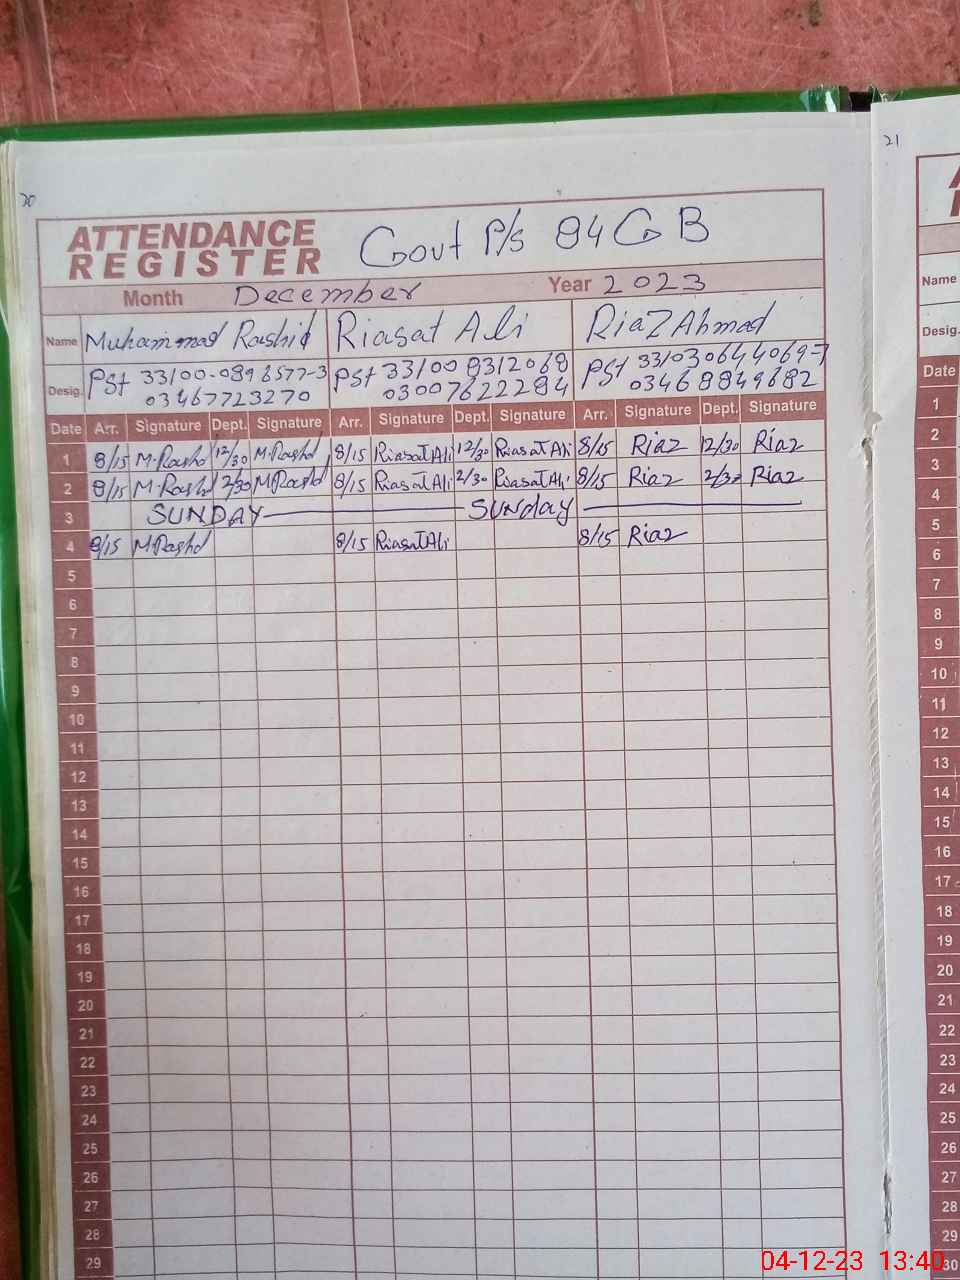 20
21
ATTENDANCE
REGISTER
Govt P/s 84 GB
Month December Year 2023
Name Muhammad Rashid Riasat Ali Riaz Ahmad
Desig. PSt 33100-0898577-3 PSt 33100 8312068 PSt 33103064 4069-7
03467723270 03007622284 03468849682
Date Arr. Signature Dept. Signature Arr. Signature Dept. Signature Arr. Signature Dept. Signature
1 8/15 M.Rashd 12/30 M.Rashd 8/15 Riasat Ali 12/30 Riasat Ali 8/15 Riaz 12/30 Riaz
2 8/15 M.Rashd 2/30 M.Rashd 8/15 Riasat Ali 2/30 Riasat Ali 8/15 Riaz 2/30 Riaz
3 SUNDAY SUNday
4 8/15 M.Rashd 8/15 Riasat Ali 8/15 Riaz
5
6
7
8
9
10
11
12
13
14
15
16
17
18
19
20
21
22
23
24
25
26
27
28
29
Name
Desig.
Date
1
2
3
4
5
6
7
8
9
10
11
12
13
14
15
16
17
18
19
20
21
22
23
24
25
26
27
28
29
30
04-12-23 13:40